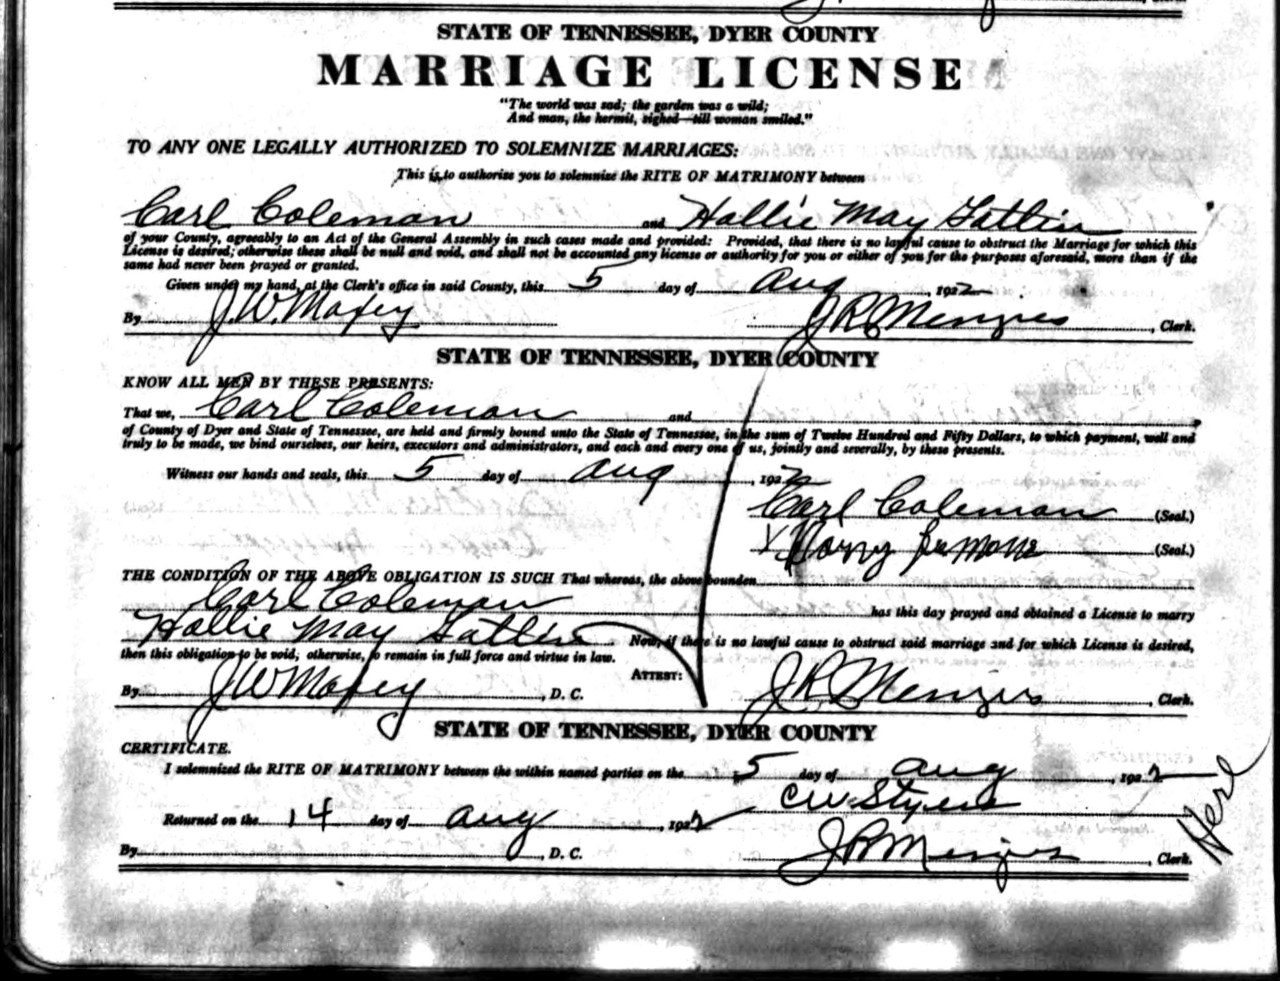 STATE OF TENNESSEE, DYER COUNTY
MARRIAGE LICENSE
"The world was sad; the garden was a wild;
And man, the hermit, sighed—till woman smiled."
TO ANY ONE LEGALLY AUTHORIZED TO SOLEMNIZE MARRIAGES:
This is to authorize you to solemnize the RITE OF MATRIMONY between
Carl Coleman and Hallie May
of your County, agreeably to an Act of the General Assembly in such cases made and provided: Provided, that there is no lawful cause to obstruct the Marriage for which this
License is desired; otherwise these shall be null and void, and shall not be accounted any license or authority for you or either of you for the purposes aforesaid, more than if the
same had never been prayed or granted.
Given under my hand, at the Clerk's office in said County, this 5 day of Aug 1922
By J.W. Maxey J.R. Menzies, Clerk.
STATE OF TENNESSEE, DYER COUNTY
KNOW ALL MEN BY THESE PRESENTS:
That we, Carl Coleman and
of County of Dyer and State of Tennessee, are held and firmly bound unto the State of Tennessee, in the sum of Twelve Hundred and Fifty Dollars, to which payment, well and
truly to be made, we bind ourselves, our heirs, executors and administrators, and each and every one of us, jointly and severally, by these presents.
Witness our hands and seals, this 5 day of Aug, 1922
Carl Coleman (Seal.)
(Seal.)
THE CONDITION OF THE ABOVE OBLIGATION IS SUCH That whereas, the above bounden
Carl Coleman has this day prayed and obtained a License to marry
Hallie May Now, if there is no lawful cause to obstruct said marriage and for which License is desired,
then this obligation to be void; otherwise, to remain in full force and virtue in law.
ATTEST:
By J W Maxey, D. C. J.R. Menzies, Clerk.
STATE OF TENNESSEE, DYER COUNTY
CERTIFICATE.
I solemnized the RITE OF MATRIMONY between the within named parties on the 5 day of Aug, 1922
CW
Returned on the 14 day of Aug, 1922
By , D. C. J.R. Menzies, Clerk.